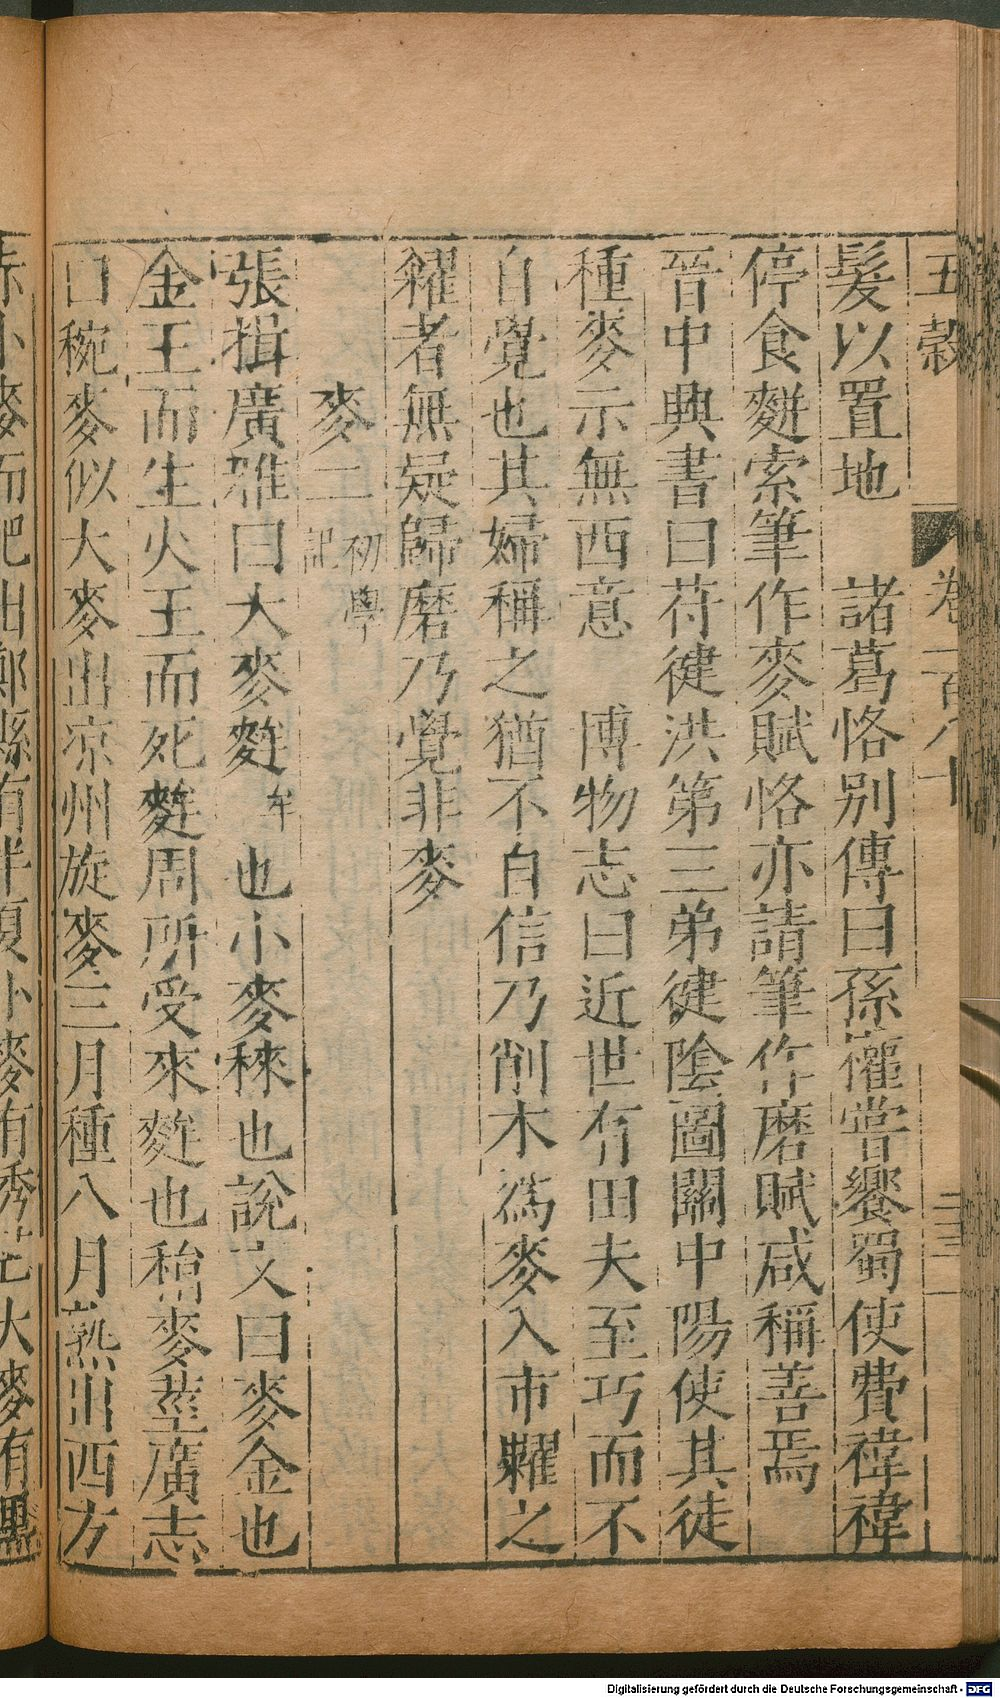 五穀 卷一百八十 二三
髮以置地 諸葛恪別傳曰孫權嘗饗蜀使費禕禕
停食䴵索筆作麥賦恪亦請筆作磨賦咸稱善焉
晉中興書曰苻健洪第三弟健陰圖關中陽使其徒
種麥示無西意 博物志曰近世有田夫至巧而不
自覺也其婦稱之猶不自信乃削木爲麥入市糶之
糴者無疑歸磨乃覺非麥
麥二 初學記
張揖廣雅曰大麥麰 牟 也小麥䅘也說文曰麥金也
金王而生火王而死麰周所受來麰也稍麥莖廣志
曰䅚麥似大麥出凉州旋麥三月種八月熟出西方
赤小麥而肥出鄭縣有半夏小麥有秀芒大麥有黑
Digitalisierung gefördert durch die Deutsche Forschungsgemeinschaft - DFG